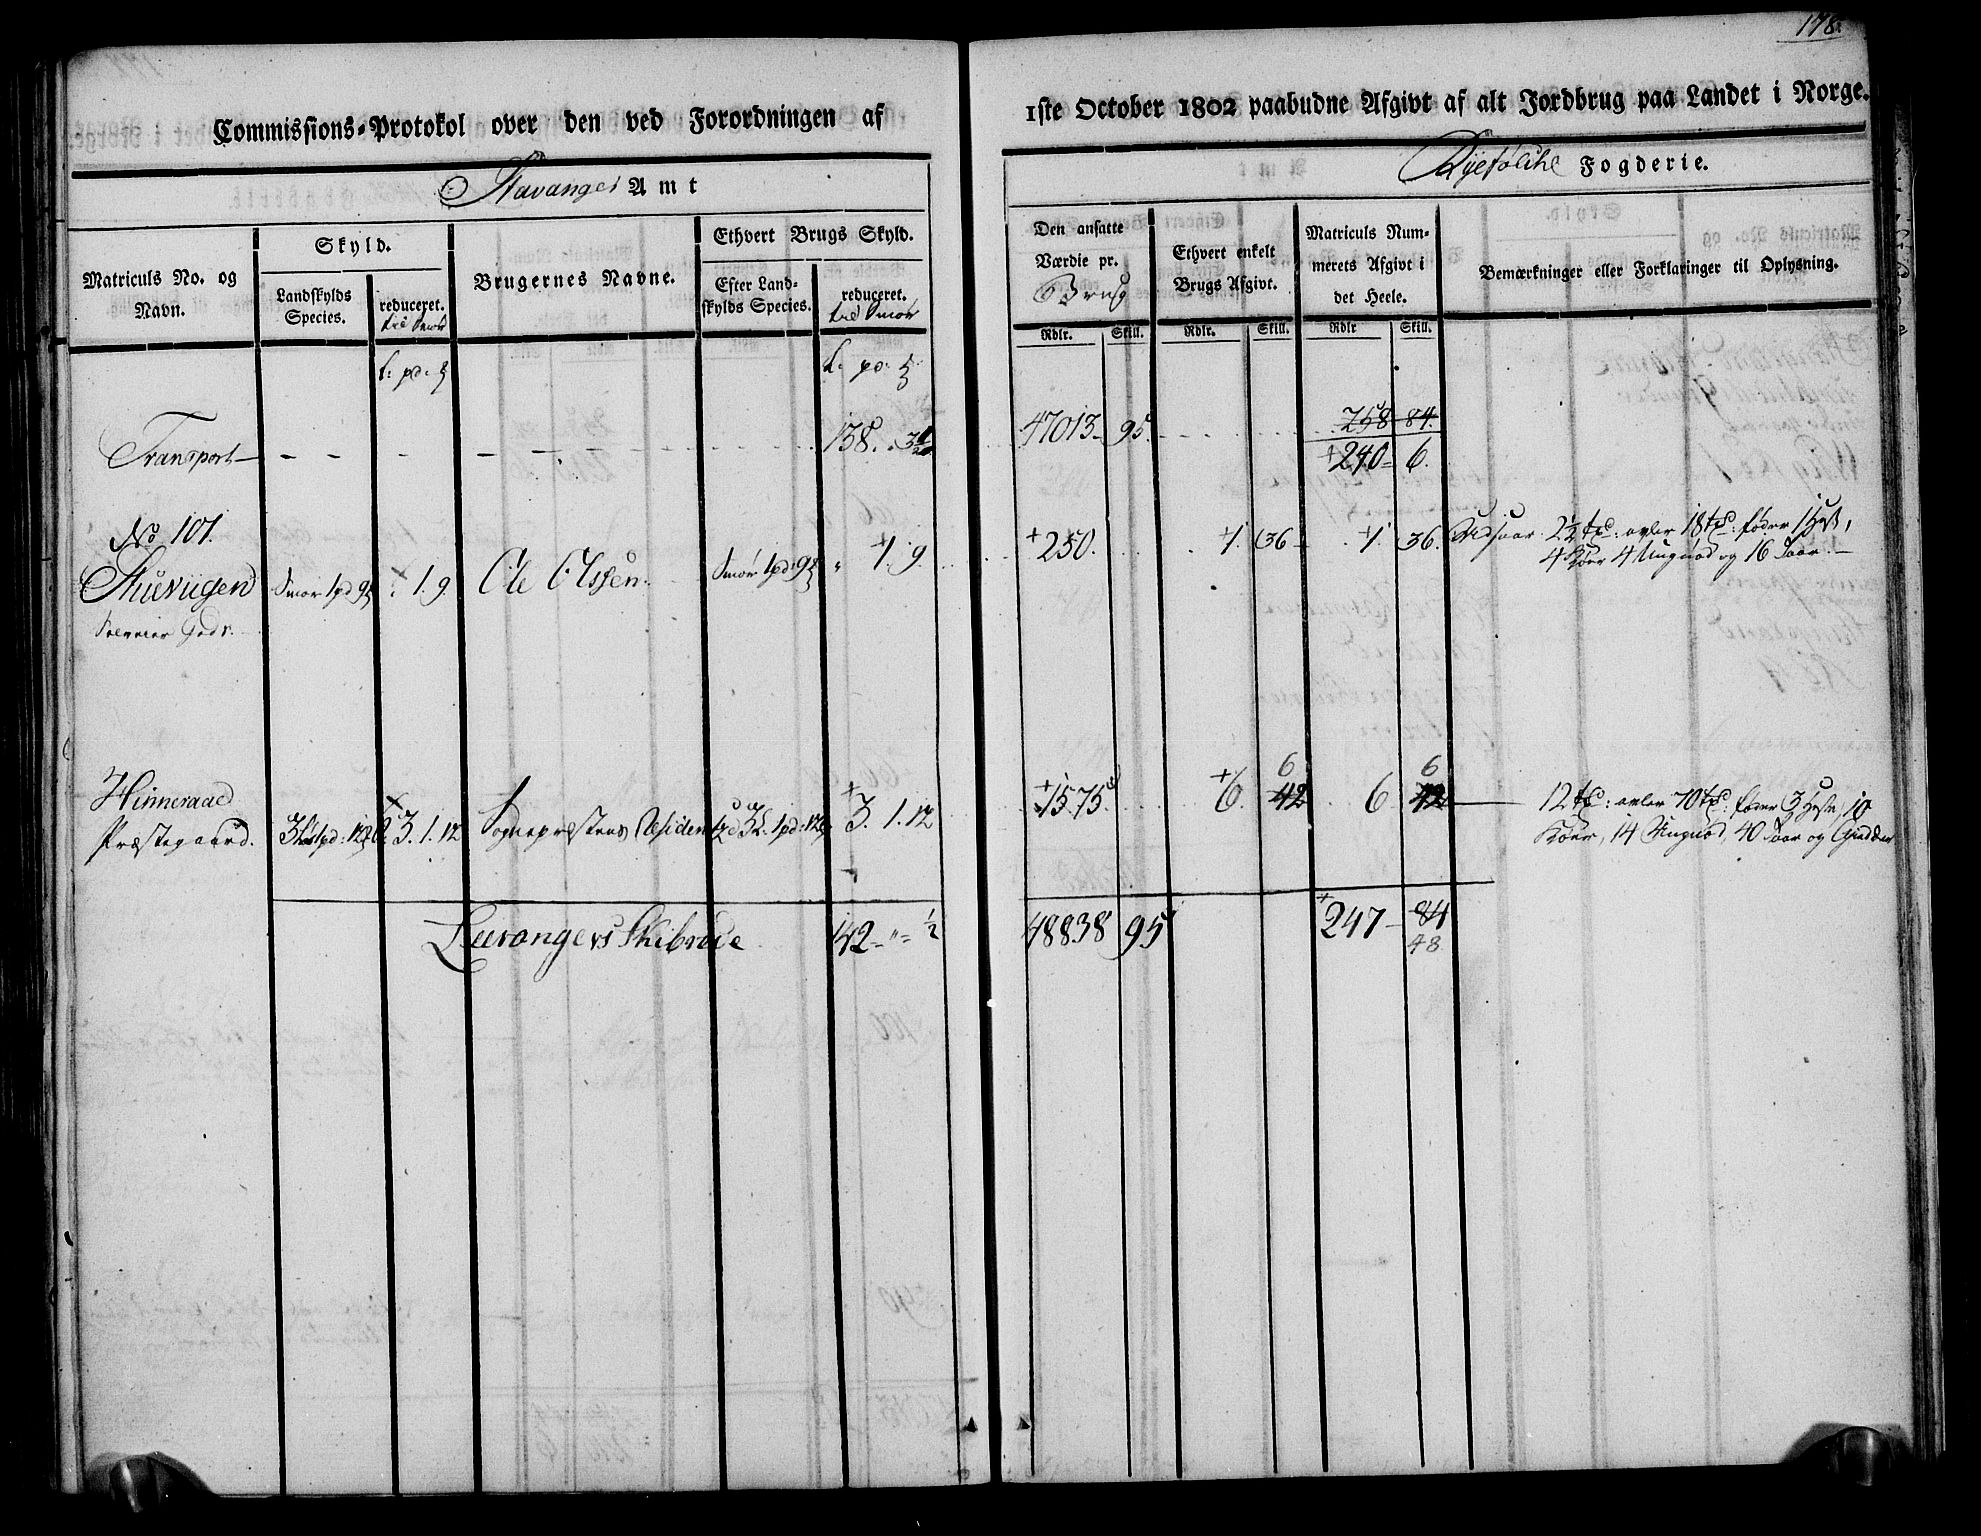 178.
Commissions-Protokol over den ved Forordningen af
1ste October 1802 paabudne Afgivt af alt Jordbrug paa Landet i Norge.
Stavanger Amt
Ryefølche Fogderie.
Matriculs No. og Navn.
Skyld.
Landskylds Species.
reduceret. til Smør
Brugernes Navne.
Ethvert Brugs Skyld.
Efter Landskylds Species.
reduceret. til Smør
Den ansatte Værdie pr. Brug
Rdlr. Skill.
Ethvert enkelt Brugs Afgivt.
Rdlr. Skill.
Matriculs Nummerets Afgivt i det Heele.
Rdlr Skill.
Bemærkninger eller Forklaringer til Oplysning.
Transport 138. 47013 95. 258 84.
+240 6.
No 101.
Smør 1 pd 9 1. 9. Ole Olssen. Smør 1 pd 9 " 1. 9. +250. 1. 36 1. 36. Udsaar 2½ : avler 18 : føder 1 Hest,
4 Kiør 4 Ungnød og 16 Saar.
Gods.
Hinneraae 6 6
Præstegaard. 3. 1. 12 Sognepræstens Residents 3. 1. 12 +1575. +6. 42 6 42 12 : avler 70 : føder 3 Heste, 10
Kiør, 14 Ungnød, 40 Saar og Giedder
Leerangers Skibrede 142 " ½ 48838 95 +247 84
48